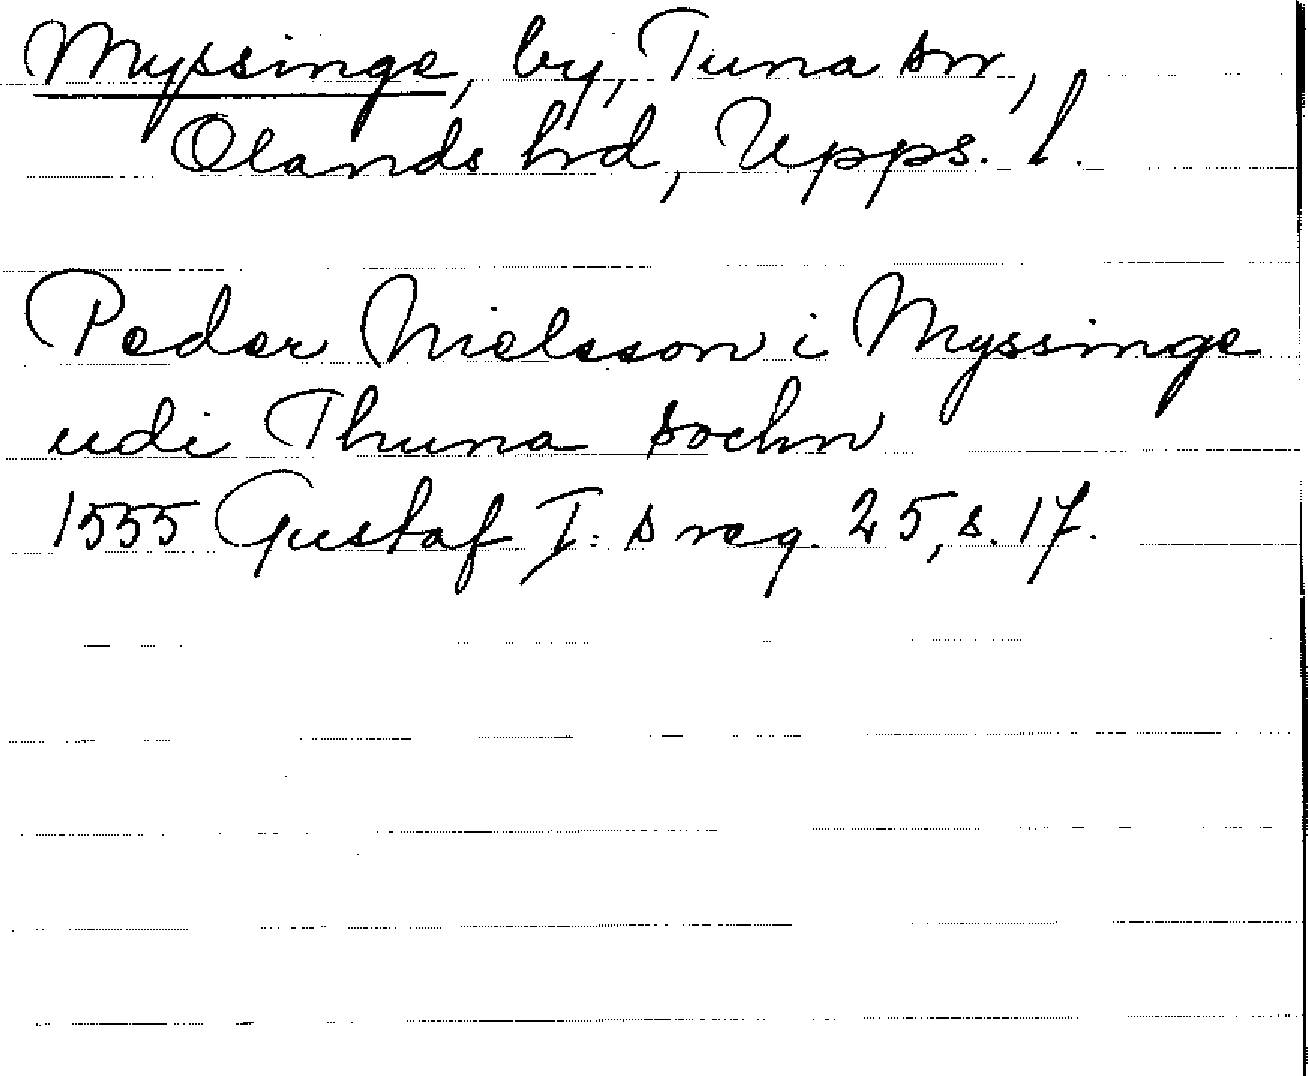 Myssinge, by, Tuna sn,
Olands hrd, Upps. l.
Peder Nielsson i Myssinge
udi Thuna sochn
1555 Gustaf I:s reg. 25, s. 17.